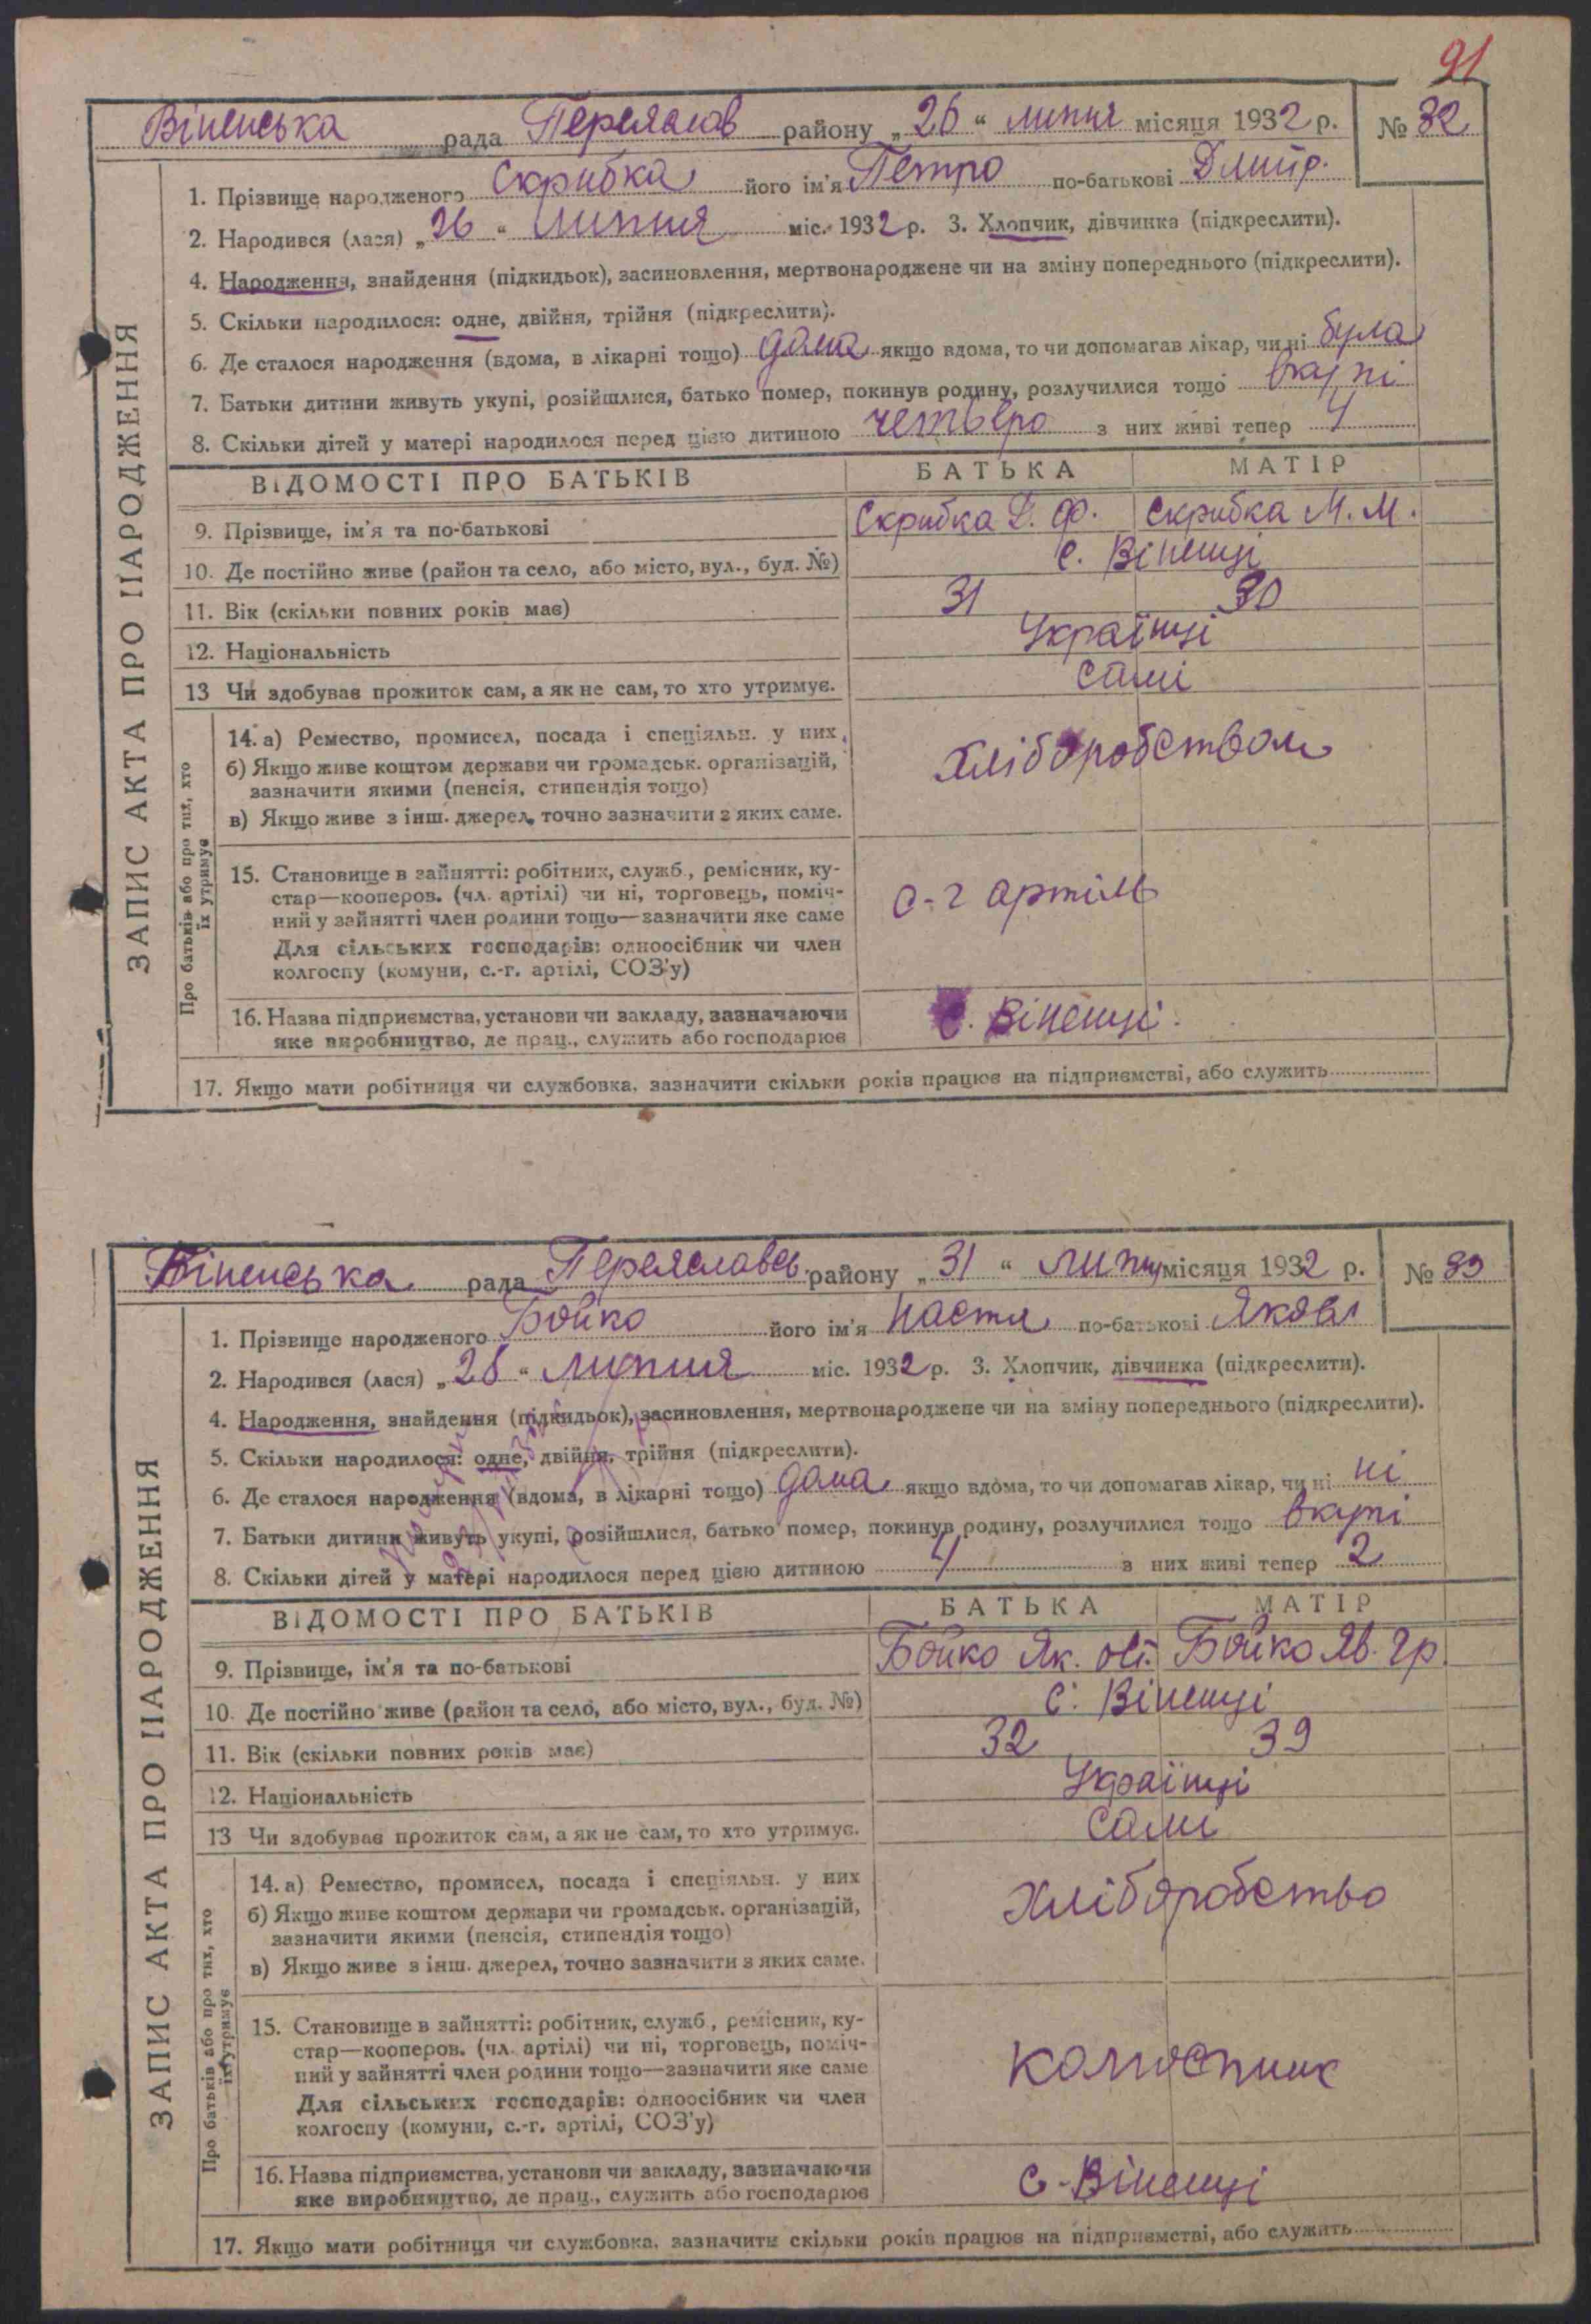 91
Віненська рада Переяслов району „26“ липня місяця 1932 р. № 82
1. Прізвище народженого Скрибка його ім'я Петро по-батькові Дмитр.
2. Народився (лася) „26“ липня міс. 1932 р. 3. Хлопчик, дівчинка (підкреслити).
4. Народження, знайдення (підкидьок), засиновлення, мертвонароджене чи на зміну попереднього (підкреслити).
5. Скільки народилося: одне, двійня, трійня (підкреслити).
6. Де сталося народження (вдома, в лікарні тощо) дома якщо вдома, то чи допомагав лікар, чи ні була
7. Батьки дитини живуть укупі, розійшлися, батько помер, покинув родину, розлучилися тощо вкупі
8. Скільки дітей у матері народилося перед цією дитиною четверо з них живі тепер 4
ЗАПИС АКТА ПРО НАРОДЖЕННЯ
ВІДОМОСТІ ПРО БАТЬКІВ БАТЬКА МАТІР
9. Прізвище, ім'я та по-батькові Скрибка Д. Ф. Скрибка М. М.
10. Де постійно живе (район та село, або місто, вул., буд. №) с. Віненці
11. Вік (скільки повних років має) 31 30
12. Національність Українці
13 Чи здобуває прожиток сам, а як не сам, то хто утримує. самі
Про батьків або про тих, хто
їх утримує
14. а) Ремество, промисел, посада і спеціяльн. у них
б) Якщо живе коштом держави чи громадськ. організацій,
зазначити якими (пенсія, стипендія тощо)
хліборобством
в) Якщо живе з інш. джерел, точно зазначити з яких саме.
15. Становище в зайнятті: робітник, служб., ремісник, ку-
стар—кооперов. (чл. артілі) чи ні, торговець, поміч-
ний у зайнятті член родини тощо—зазначити яке саме
с-г артіль
Для сільських господарів: одноосібник чи член
колгоспу (комуни, с.-г. артілі, СОЗ'у)
16. Назва підприємства, установи чи закладу, зазначаючи
яке виробництво, де прац., служить або господарює
с. Віненці.
17. Якщо мати робітниця чи службовка, зазначити скільки років працює на підприємстві, або служить
Віненська рада Переяславсь. району „31“ липня місяця 1932 р. № 83
1. Прізвище народженого Бойко його ім'я Настя по-батькові Яковл
2. Народився (лася) „28“ липня міс. 1932 р. 3. Хлопчик, дівчинка (підкреслити).
4. Народження, знайдення (підкидьок), засиновлення, мертвонароджене чи на зміну попереднього (підкреслити).
5. Скільки народилося: одне, двійня, трійня (підкреслити).
6. Де сталося народження (вдома, в лікарні тощо) дома якщо вдома, то чи допомагав лікар, чи ні ні
7. Батьки дитини живуть укупі, розійшлися, батько помер, покинув родину, розлучилися тощо вкупі
8. Скільки дітей у матері народилося перед цією дитиною 4 з них живі тепер 2
ЗАПИС АКТА ПРО НАРОДЖЕННЯ
ВІДОМОСТІ ПРО БАТЬКІВ БАТЬКА МАТІР
9. Прізвище, ім'я та по-батькові Бойко Як. Бойко Яв. Гр.
10. Де постійно живе (район та село, або місто, вул., буд. №) с. Віненці
11. Вік (скільки повних років має) 32 39
12. Національність Українці
13 Чи здобуває прожиток сам, а як не сам, то хто утримує. самі
Про батьків або про тих, хто
їх утримує
14. а) Ремество, промисел, посада і спеціяльн. у них
б) Якщо живе коштом держави чи громадськ. організацій,
зазначити якими (пенсія, стипендія тощо)
хліборобство
в) Якщо живе з інш. джерел, точно зазначити з яких саме.
15. Становище в зайнятті: робітник, служб., ремісник, ку-
стар—кооперов. (чл. артілі) чи ні, торговець, поміч-
ний у зайнятті член родини тощо—зазначити яке саме
колгоспник
Для сільських господарів: одноосібник чи член
колгоспу (комуни, с.-г. артілі, СОЗ'у)
16. Назва підприємства, установи чи закладу, зазначаючи
яке виробництво, де прац., служить або господарює
с-Віненці
17. Якщо мати робітниця чи службовка, зазначити скільки років працює на підприємстві, або служить